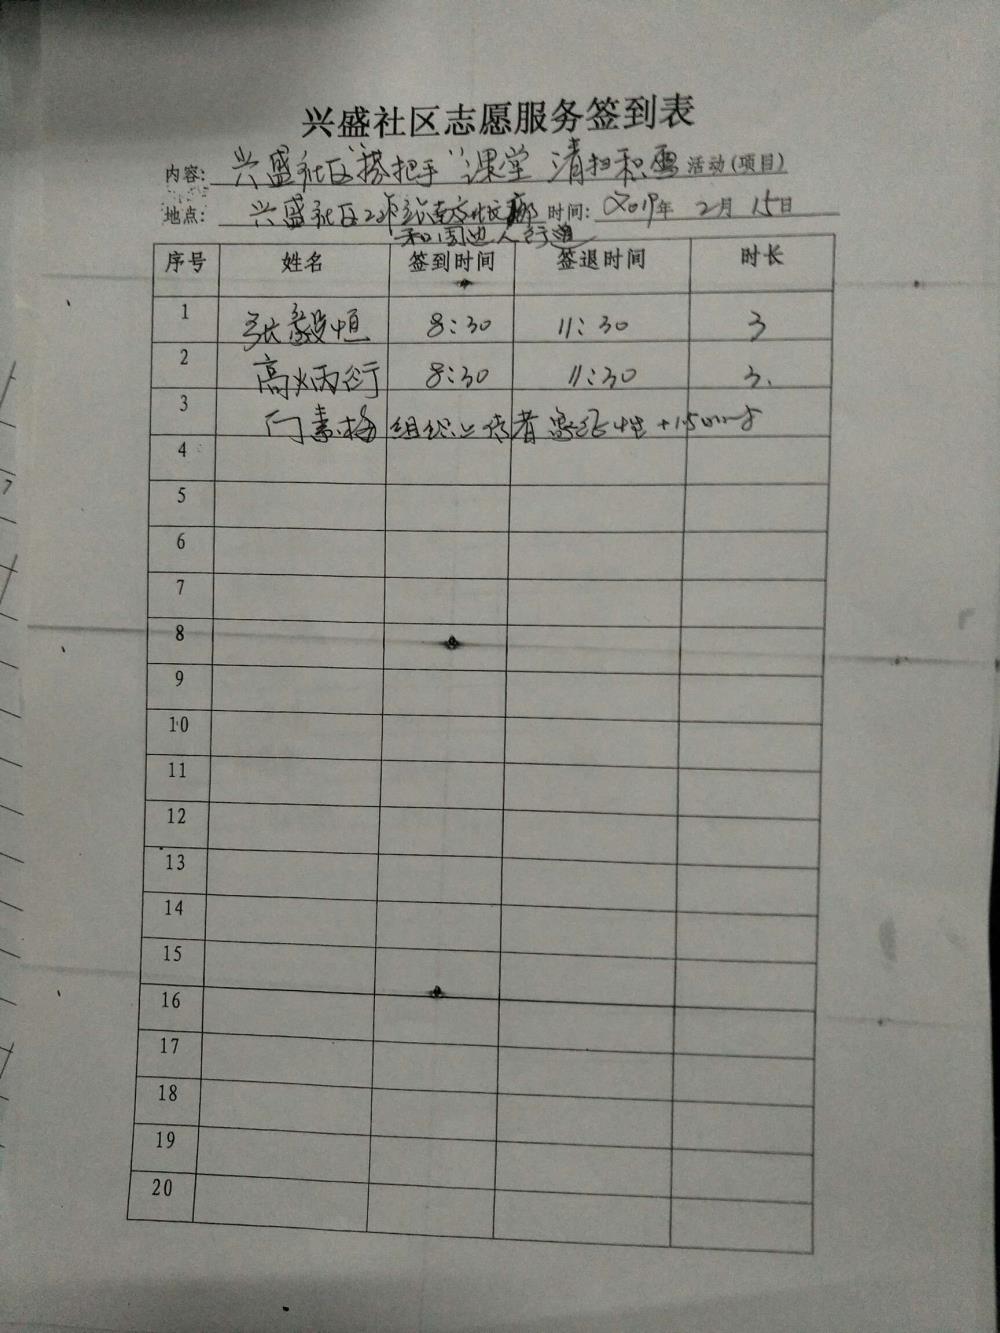 兴盛社区志愿服务签到表
内容: 兴盛社区"搭把手"课堂 清扫积雪 活动(项目)
地点: 兴盛社区 时间: 2019年 2月 15日
和周边人行道
序号 姓名 签到时间 签退时间 时长
1 张毅恒 8:30 11:30 3
2 高炳衍 8:30 11:30 3.
3 门素梅 组织上传者
4
5
6
7
8
9
10
11
12
13
14
15
16
17
18
19
20